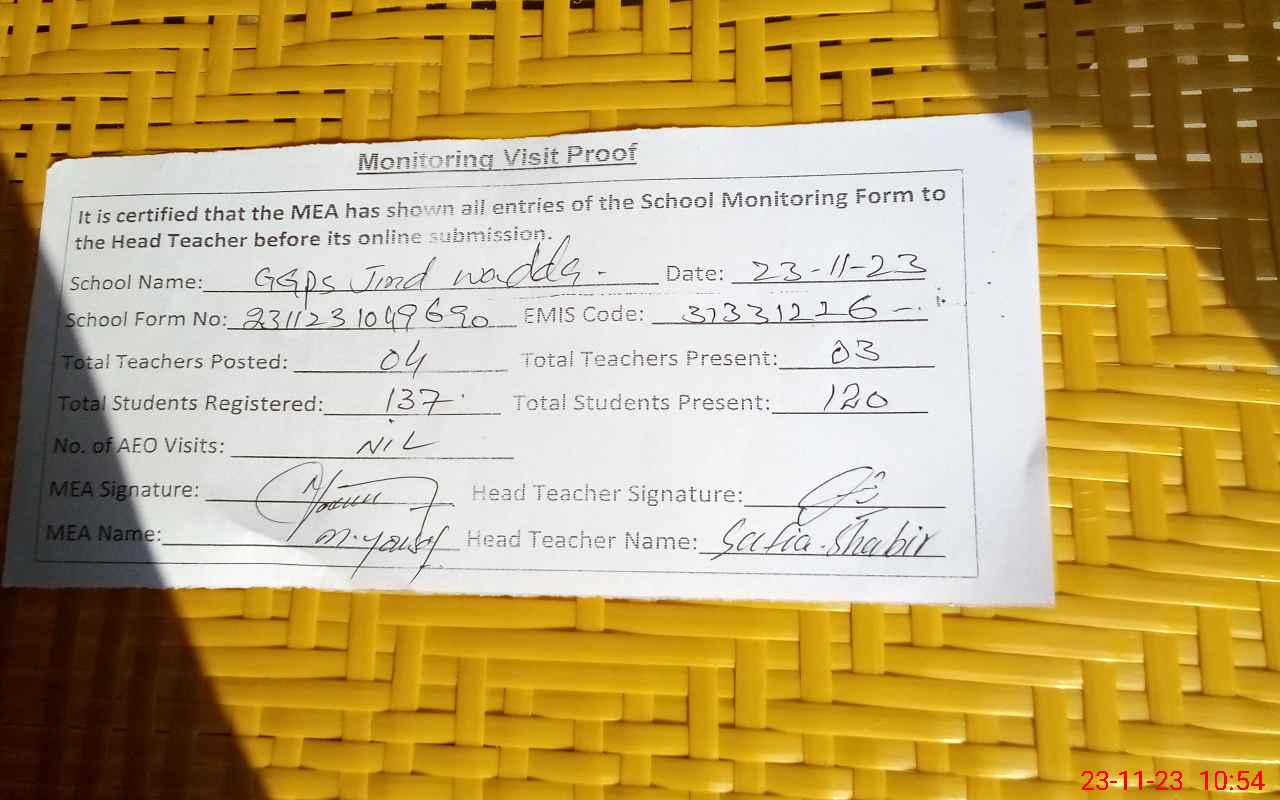 Monitoring Visit Proof
It is certified that the MEA has shown all entries of the School Monitoring Form to
the Head Teacher before its online submission.
School Name: GGPS Jind wadda. Date: 23-11-23
School Form No: 2311231049690 EMIS Code: 37331226
Total Teachers Posted: 04 Total Teachers Present: 03
Total Students Registered: 137 Total Students Present: 120
No. of AEO Visits: NIL
MEA Signature: Head Teacher Signature:
MEA Name: M. Yousf Head Teacher Name: Safia Shabir
23-11-23 10:54